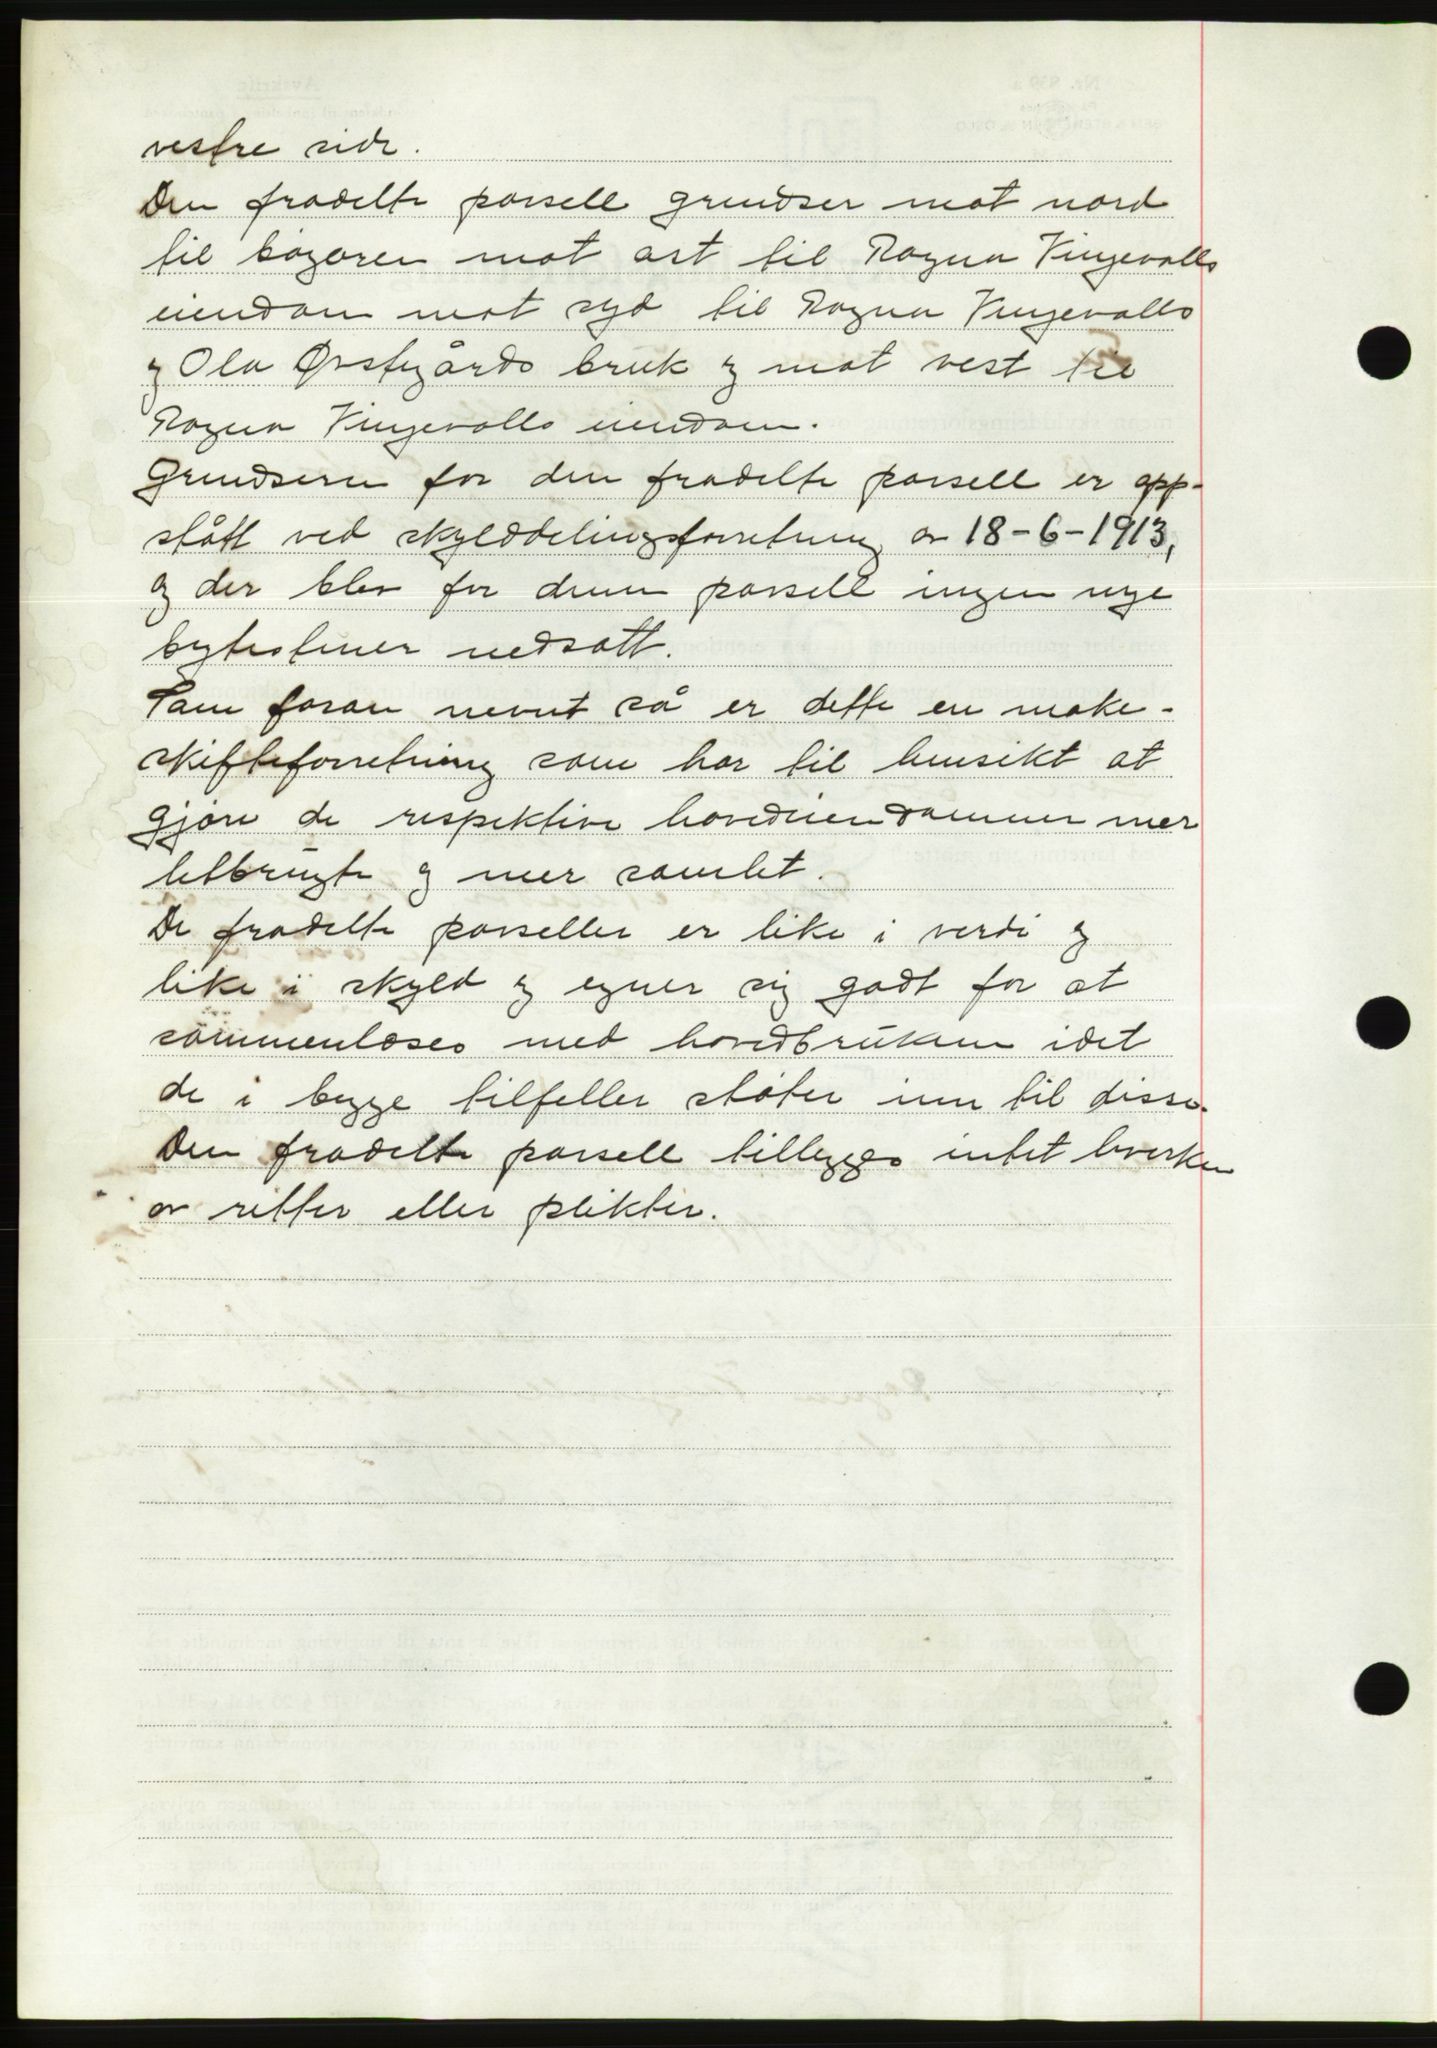 vestre side.
Den fradelte parsell grendser mot nord
til bøgaren mot øst til Ragna Vingevolls
eiendom mot syd til Ragna Vingevolls
og Ola Øvstegårds bruk og mot vest til
Ragna Vingevolls eiendom.
Grendsene for den fradelte parsell er opp-
stått ved skylddelingsforretning av 18-6-1913,
og der blev for denne parsell ingen nye
bytestener nedsatt.
Som foran nevnt så er dette en make-
skifteforretning som har til hensikt at
gjøre de respektive hovedeiendommer mer
letbrugte og mer samlet.
De fradelte parseller er like i verdi og
like i skyld og egner sig godt for at
sammenlæses med hovedbrukene idet
de i begge tilfeller støter inn til disse.
Den fradelte parsell tillegges intet hverken
av retter eller plikter.